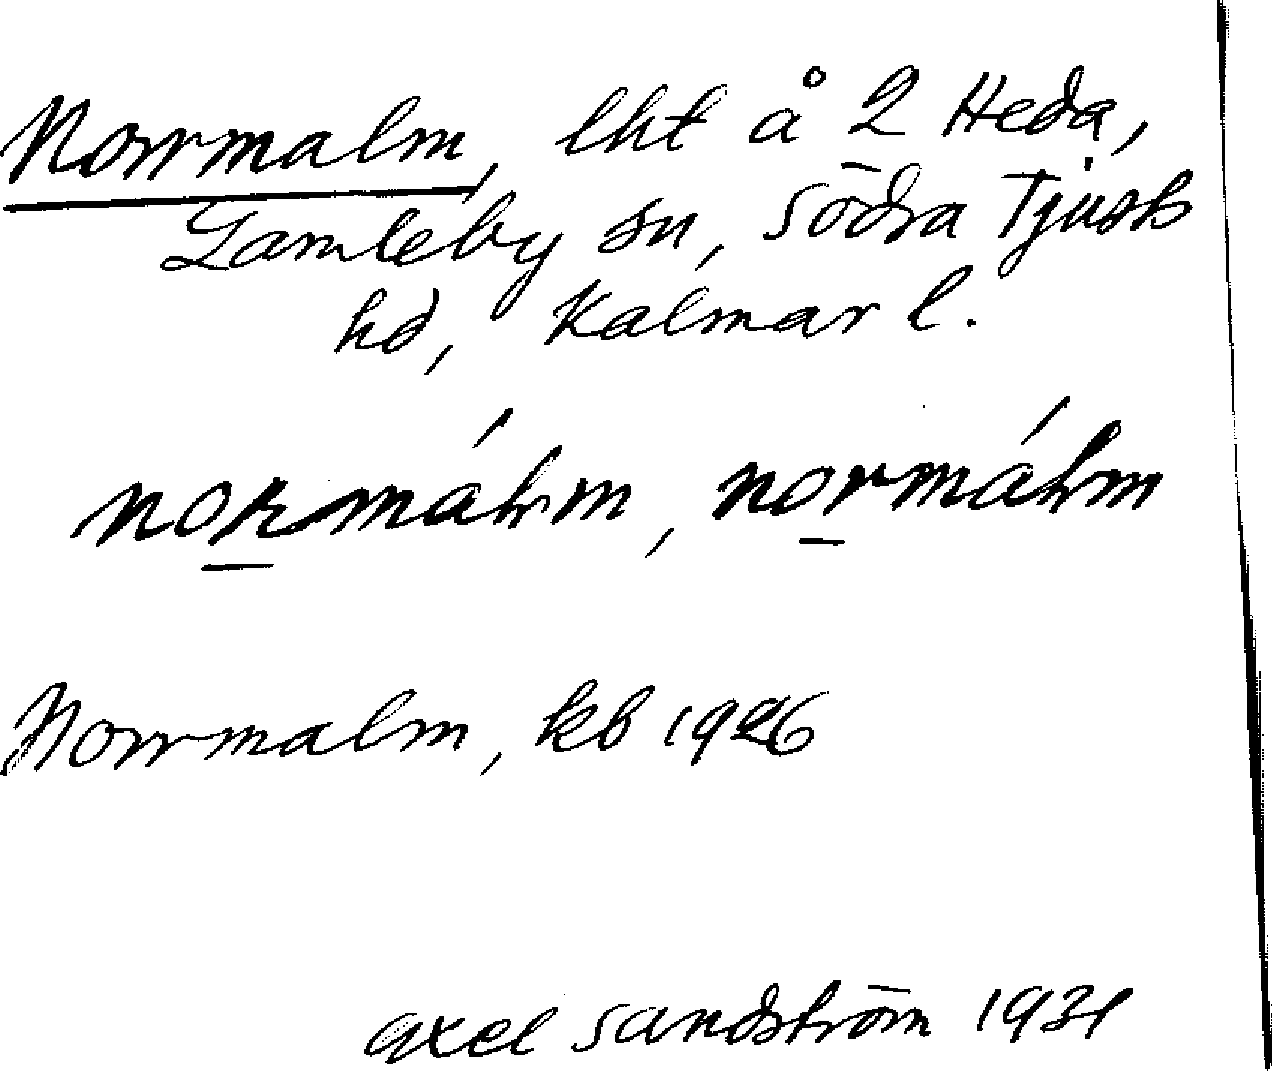 Norrmalm, lht å 2 Heda,
Gamleby sn, Södra Tjusts
hd, Kalmar l.
Norrmalm, kb 1926
Axel Sandström 1931